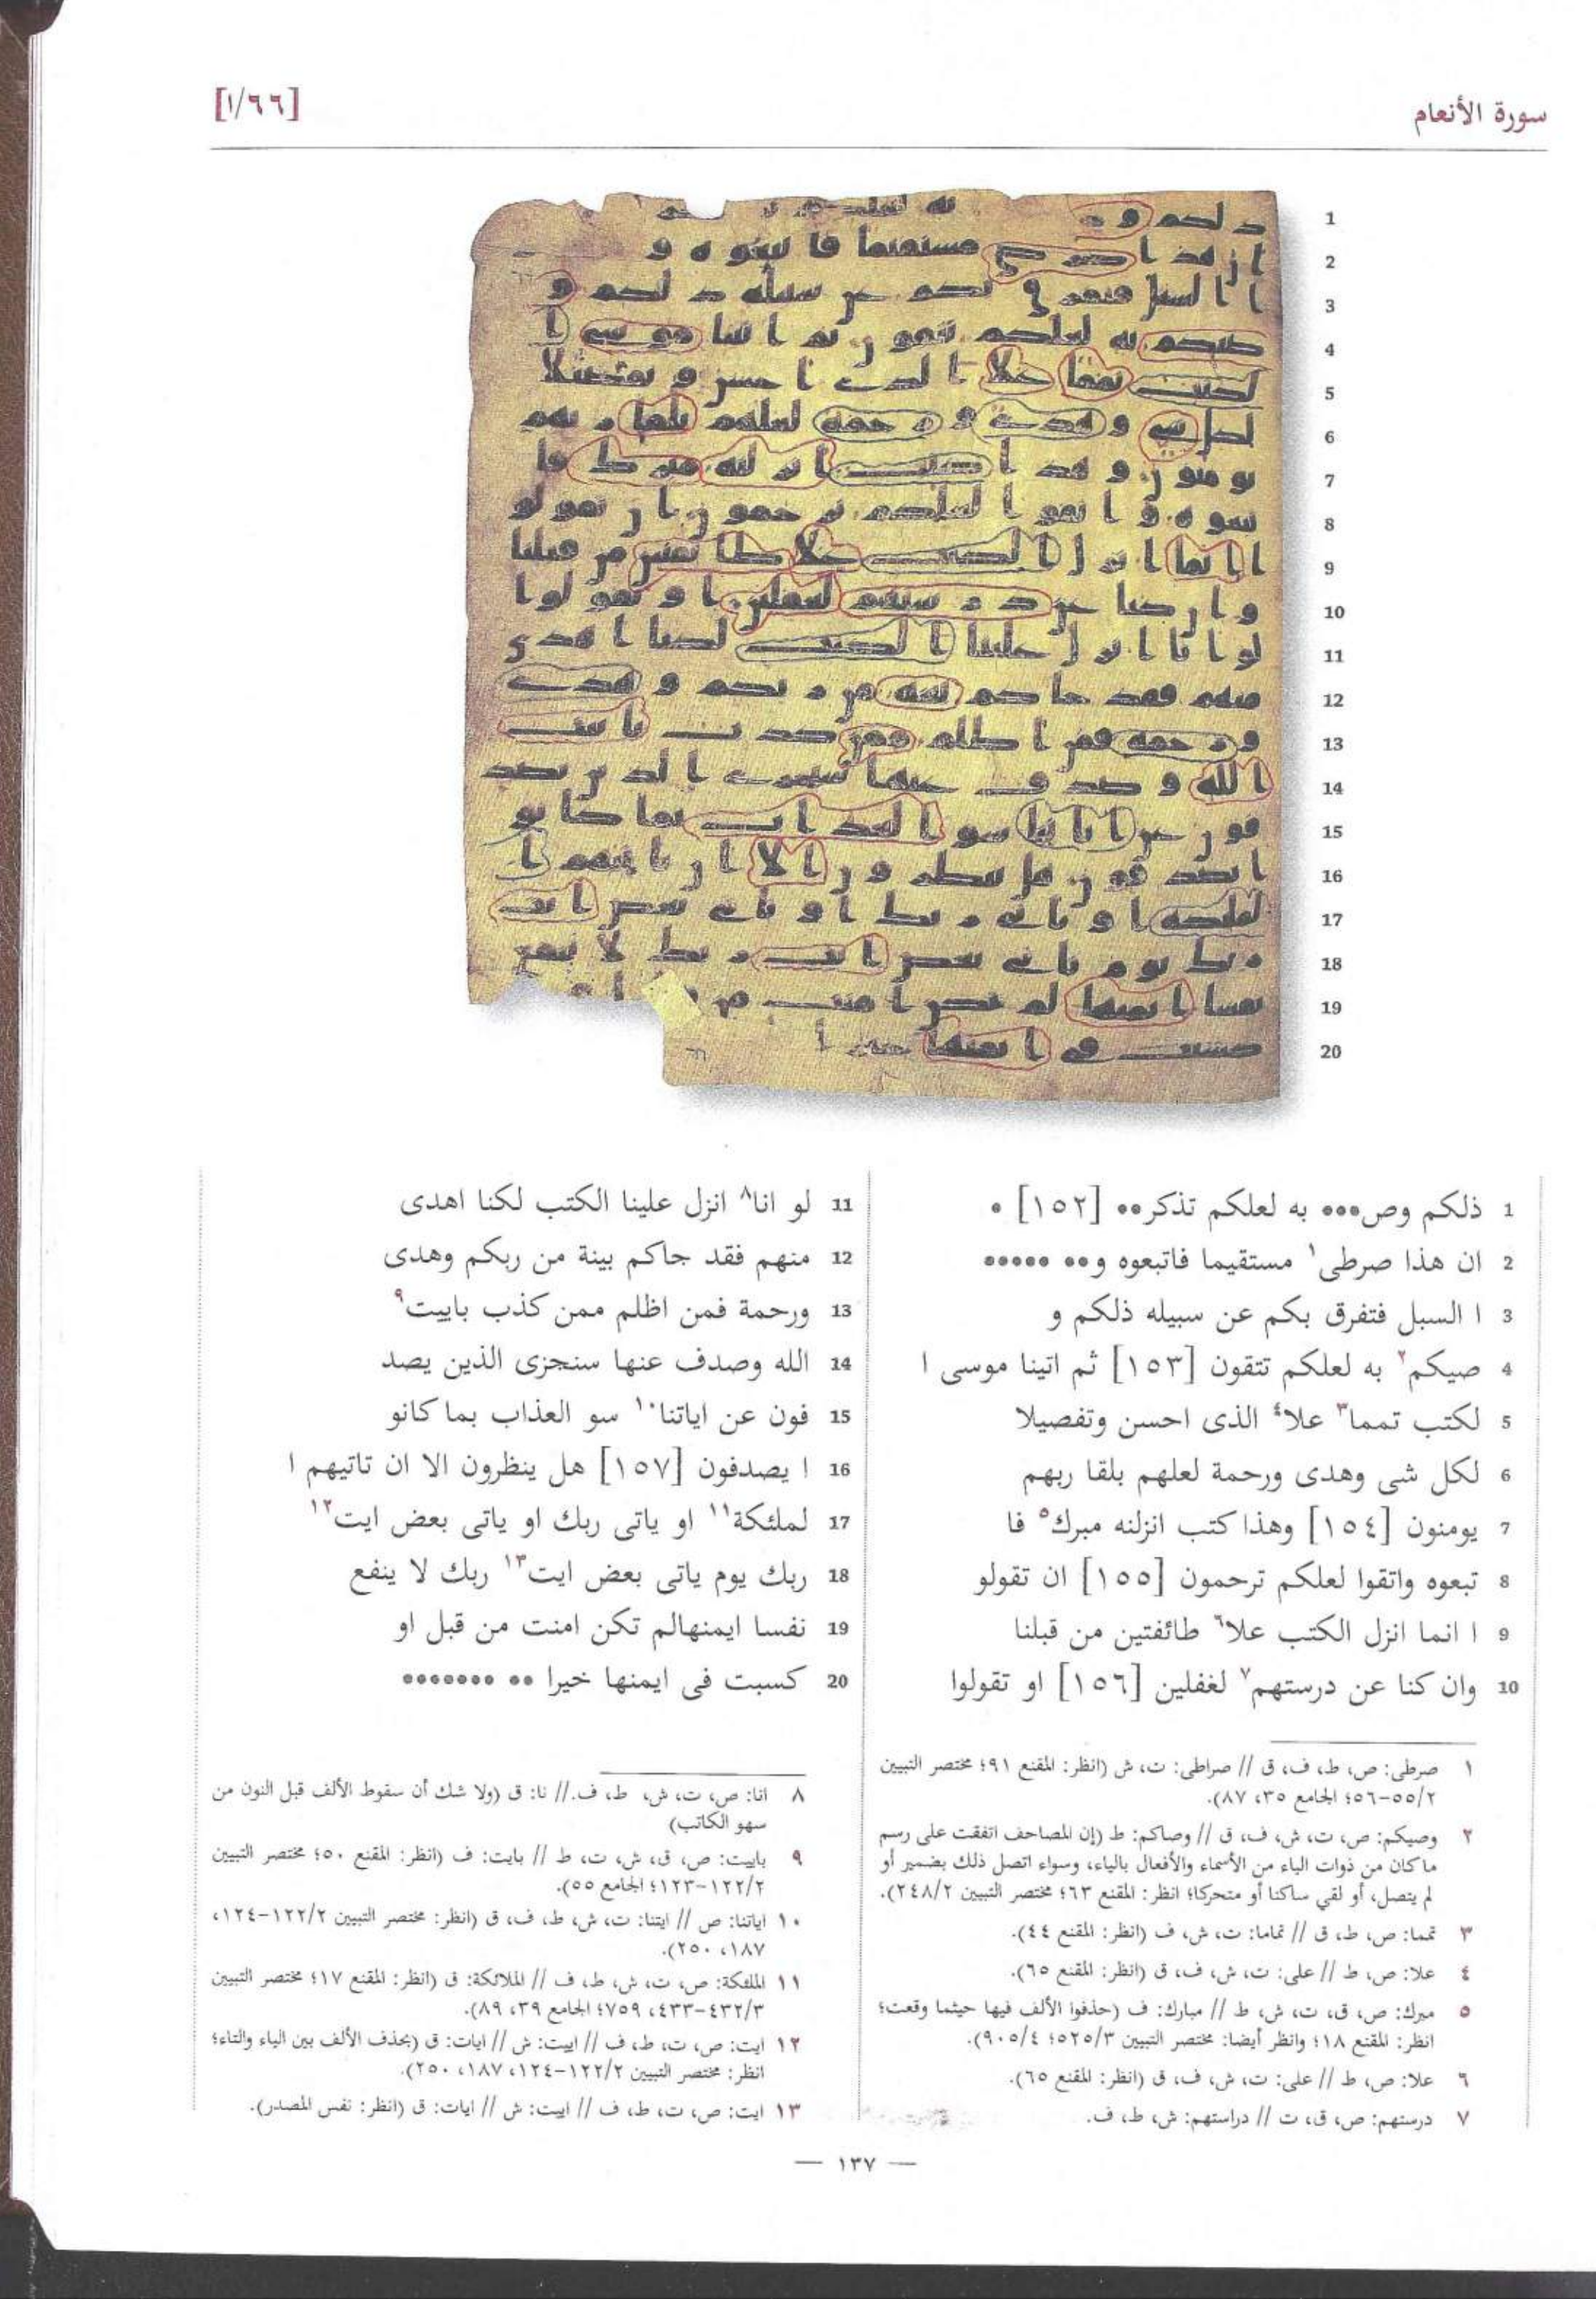 سورة الأنعام
[١/٦٦]
1 ذلكم وص●●● به لعلكم تذكر●● [١٥٢] ●
2 ان هذا صرطى١ مستقيما فاتبعوه و●● ●●●●●
3 ا السبل فتفرق بكم عن سبيله ذلكم و
4 صيكم٢ به لعلكم تتقون [١٥٣] ثم اتينا موسى ا
5 لكتب تمما٣ علا٤ الذى احسن وتفصيلا
6 لكل شى وهدى ورحمة لعلهم بلقا ربهم
7 يومنون [١٥٤] وهذا كتب انزلنه مبرك٥ فا
8 تبعوه واتقوا لعلكم ترحمون [١٥٥] ان تقولو
9 ا انما انزل الكتب علا٦ طائفتين من قبلنا
10 وان كنا عن درستهم٧ لغفلين [١٥٦] او تقولوا
11 لو انا٨ انزل علينا الكتب لكنا اهدى
12 منهم فقد جاكم بينة من ربكم وهدى
13 ورحمة فمن اظلم ممن كذب باييت٩
14 الله وصدف عنها سنجزى الذين يصد
15 فون عن اياتنا١٠ سو العذاب بما كانو
16 ا يصدفون [١٥٧] هل ينظرون الا ان تاتيهم ا
17 لملئكة١١ او ياتى ربك او ياتى بعض ايت١٢
18 ربك يوم ياتى بعض ايت١٣ ربك لا ينفع
19 نفسا ايمنهالم تكن امنت من قبل او
20 كسبت فى ايمنها خيرا ●● ●●●●●●●
١ صرطى: ص، ط، ف، ق // صراطى: ت، ش (انظر: المقنع ٩١؛ مختصر التبيين
٥٥/٢-٥٦؛ الجامع ٣٥، ٨٧).
٢ وصيكم: ص، ت، ش، ف، ق // وصاكم: ط (إن المصاحف اتفقت على رسم
ما كان من ذوات الياء من الأسماء والأفعال بالياء، وسواء اتصل ذلك بضمير أو
لم يتصل، أو لقي ساكنا أو متحركا؛ انظر: المقنع ٦٣؛ مختصر التبيين ٢٤٨/٢).
٣ تمما: ص، ط، ق // تماما: ت، ش، ف (انظر: المقنع ٤٤).
٤ علا: ص، ط // على: ت، ش، ف، ق (انظر: المقنع ٦٥).
٥ مبرك: ص، ق، ت، ش، ط // مبارك: ف (حذفوا الألف فيها حيثما وقعت؛
انظر: المقنع ١٨؛ وانظر أيضا: مختصر التبيين ٥٢٥/٣؛ ٩٠٥/٤).
٦ علا: ص، ط // على: ت، ش، ف، ق (انظر: المقنع ٦٥).
٧ درستهم: ص، ق، ت // دراستهم: ش، ط، ف.
٨ انا: ص، ت، ش، ط، ف. // نا: ق (ولا شك أن سقوط الألف قبل النون من
سهو الكاتب)
٩ باييت: ص، ق، ش، ت، ط // بايت: ف (انظر: المقنع ٥٠؛ مختصر التبيين
١٢٢/٢-١٢٣؛ الجامع ٥٥).
١٠ اياتنا: ص // ايتنا: ت، ش، ط، ف، ق (انظر: مختصر التبيين ١٢٢/٢-١٢٤،
١٨٧، ٢٥٠).
١١ الملئكة: ص، ت، ش، ط، ف // الملائكة: ق (انظر: المقنع ١٧؛ مختصر التبيين
٤٣٢/٣-٤٣٣، ٧٥٩؛ الجامع ٣٩، ٨٩).
١٢ ايت: ص، ت، ط، ف // اييت: ش // ايات: ق (بحذف الألف بين الياء والتاء؛
انظر: مختصر التبيين ١٢٢/٢-١٢٤، ١٨٧، ٢٥٠).
١٣ ايت: ص، ت، ط، ف // اييت: ش // ايات: ق (انظر: نفس المصدر).
— ١٣٧ —